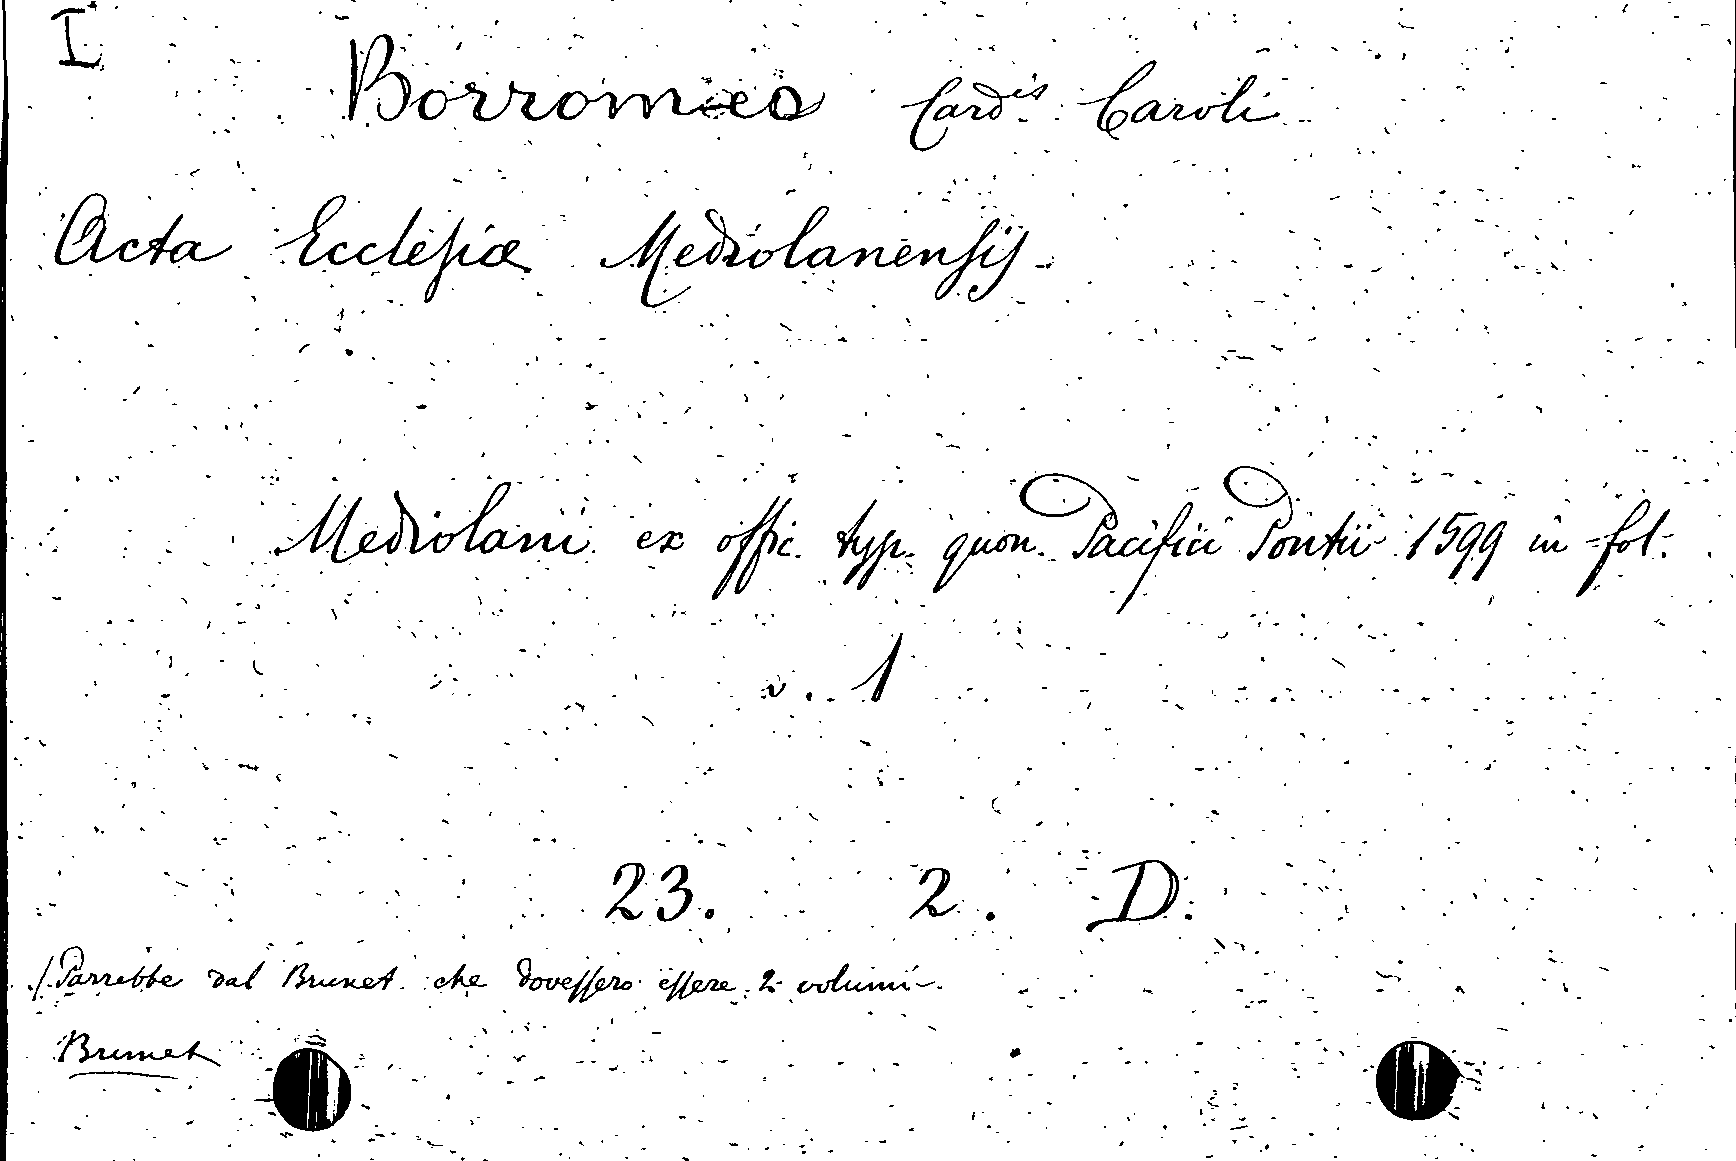 I
Borromeo Card.is Caroli
Acta Ecclesiæ Mediolanensis.
Mediolani ex offic. typ. quon. Pacifici Pontii 1599 in-fol.
v. 1
23. 2. D.
/. Parrebbe dal Brunet che dovessero essere 2 volumi.
Brunet